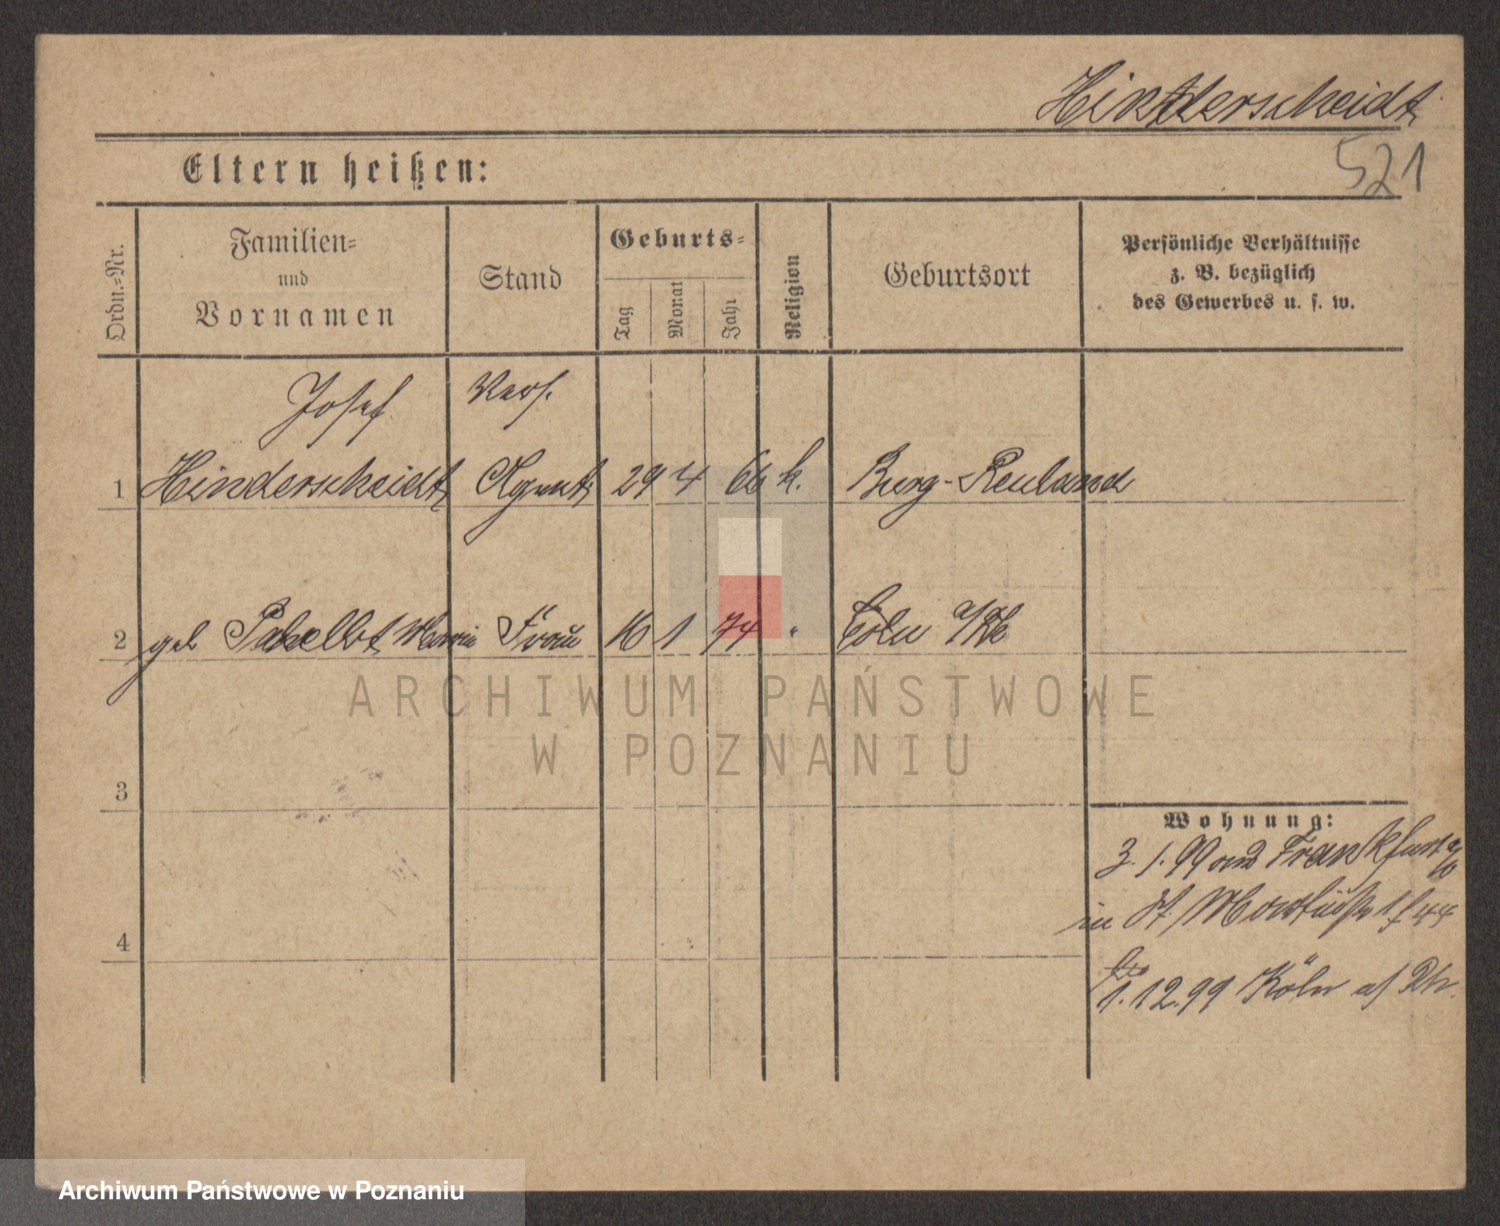 Hinderscheidt
521
Eltern heißen:
Ordn.=Nr.
Familien=
und
Vornamen
Stand
Geburts=
Tag
Monat
Jahr
Religion
Geburtsort
Persönliche Verhältnisse
z. B. bezüglich
des Gewerbes u. s. w.
Josef Vers.
1 Hinderscheidt Agent 29 4 66 k. Burg-Reuland
2 geb Marie Frau 16 1 74 " Cöln a/Rh
ARCHIWUM PAŃSTWOWE
W POZNANIU
3
Wohnung:
3. 1. 99 aus Frankfurt a/O
in St. 1 f 44
4
1. 12. 99 Köln a/ Rh.
Archiwum Państwowe w Poznaniu